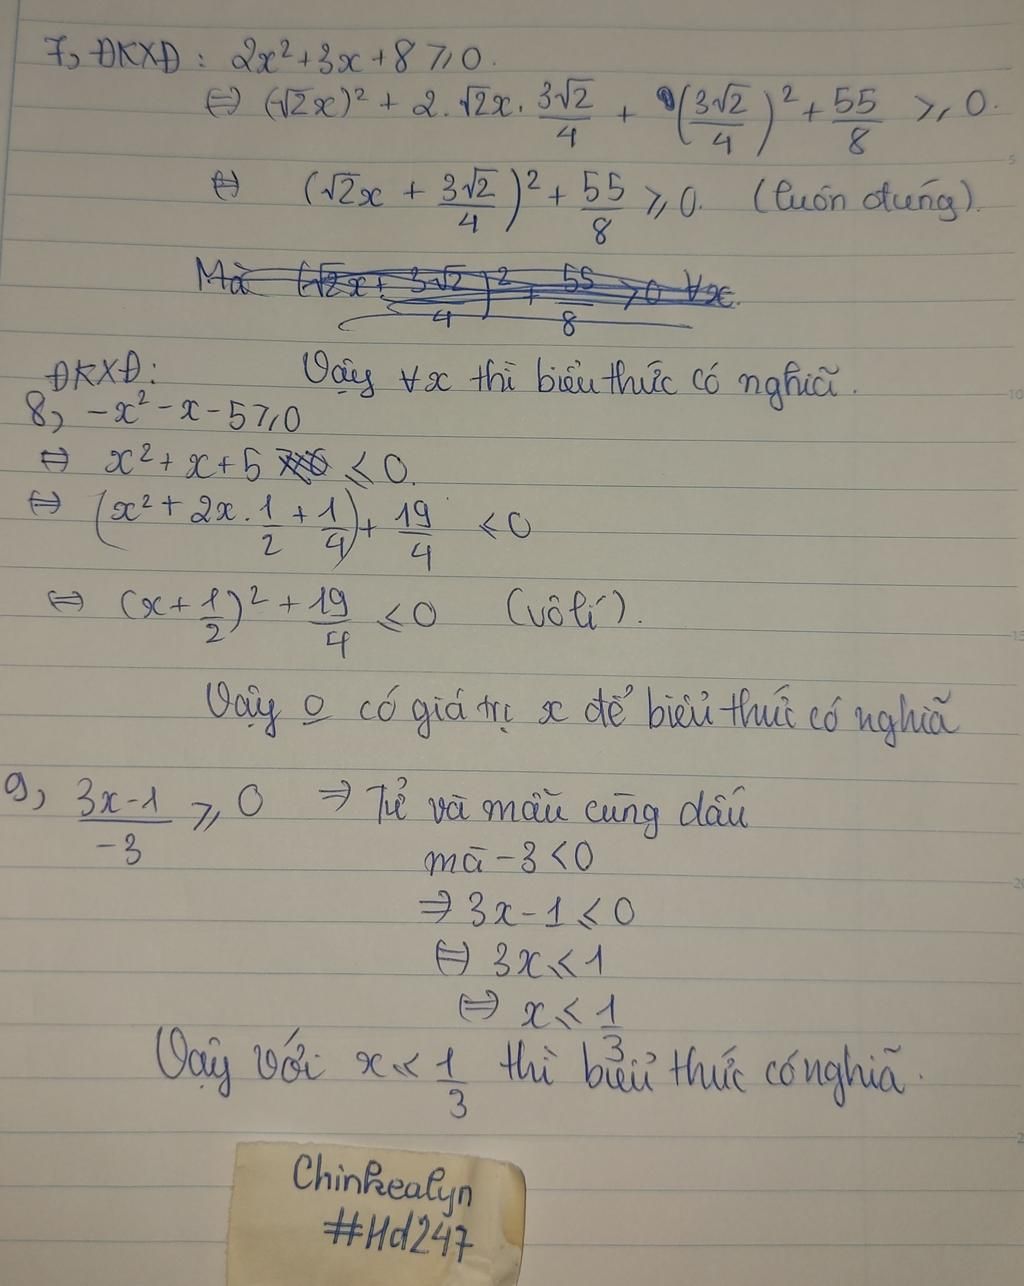 7, ĐKXĐ : 2x² + 3x + 8 ⩾ 0.
⇔ (√2x)² + 2.√2x. 3√2/4 + (3√2/4)² + 55/8 ⩾ 0.
⇔ (√2x + 3√2/4)² + 55/8 ⩾ 0. (luôn đúng).
Mà (√2x + 3√2/4)² + 55/8 > 0 ∀x.
ĐKXĐ: Vậy ∀x thì biểu thức có nghiã.
8, -x² - x - 5 ⩾ 0
⇔ x² + x + 5 ⩽ 0.
⇔ (x² + 2x. 1/2 + 1/4) + 19/4 ⩽ 0
⇔ (x + 1/2)² + 19/4 ⩽ 0 (vô lí).
Vậy o̲ có giá trị x để biểu thức có nghiã
9, 3x-1/-3 ⩾ 0 ⇒ Tử và mẫu cùng dấu
mà -3 < 0
⇒ 3x - 1 ⩽ 0
⇔ 3x ⩽ 1
⇔ x ⩽ 1/3
Vậy với x ⩽ 1/3 thì biểu thức có nghiã.
Chinkealyn
#Hd247